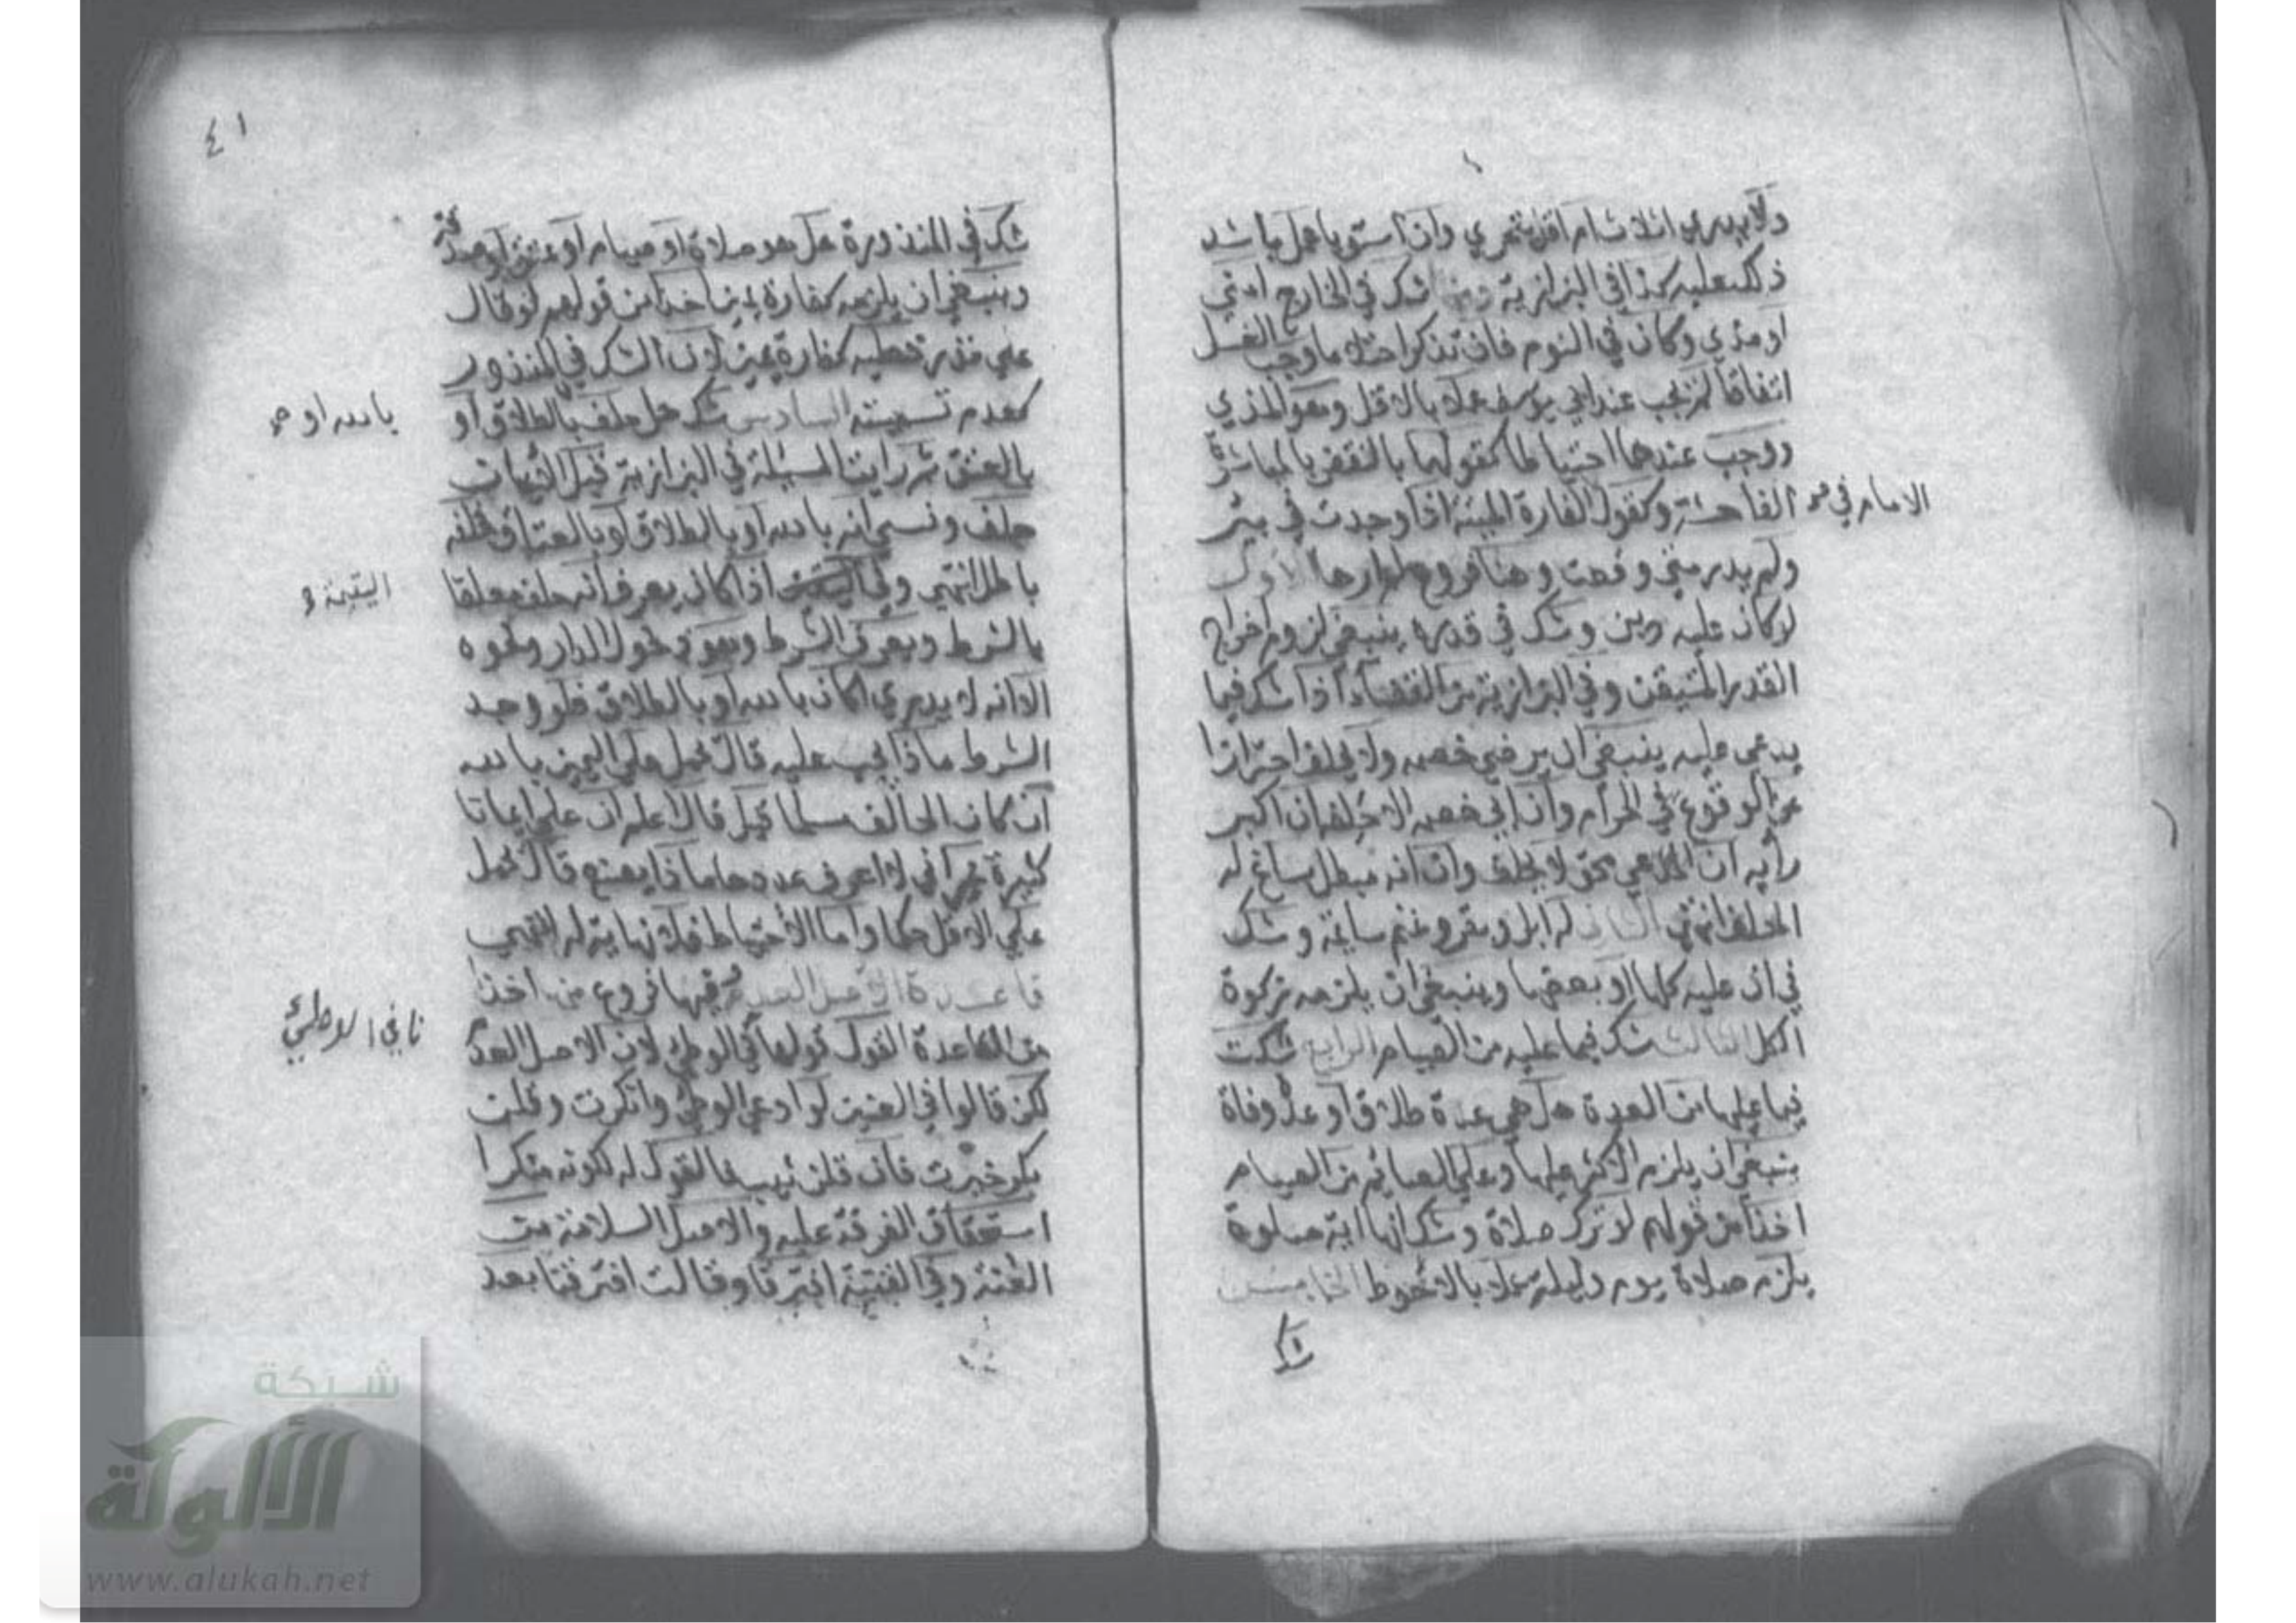 ولا يدري اثلاث ام اقل يتحري وان استويا عمل باشد
ذلك عليه كذا في البزازية ومنها شك في الخارج امني
او مذي وكان في النوم فان تذكر احتلاما وجب الغسل
اتفاقا لم يجب عند ابي يوسف عملا بالاقل وهو المذي
ووجب عندهما احتياطا كقولهما بالنقض بالمباشرة
الفاحشة وكقول الفارة الميتة اذا وجدت في بئر
الامام في صح
ولم يدر متي وقعت وهنا فروع لم ارها الاول
لو كان عليه دين وشك في قدره ينبغي لزوم اخراج
القدر المتيقن وفي البزازية من القضاء اذا شك فيما
يدعي عليه ينبغي ان يرضي خصمه ولا يحلف احترازا
عن الوقوع في الحرام وان ابي خصمه الا حلفه ان اكبر
رأيه ان المدعي محق لا يحلف وان انه مبطل ساغ له
الحلف انتهي الثاني له ابل وبقر وغنم سايمة وشك
في ان عليه كلها او بعضها وينبغي ان يلزمه زكوة
الكل الثالث شك فيما عليه من الصيام الرابع شكت
فيما عليها من العدة هل هي عدة طلاق او عدة وفاة
ينبغي ان يلزم الاكثر عليها وعلي الصائم من الصيام
اخذا من قولهم لو ترك صلاة وشك انها اية صلوة
يلزمه صلاة يوم وليلة عملا بالاحوط الخامس
شك
٤١
شك في المنذورة هل هو صلاة او صيام او عتق او صدقة
وينبغي ان يلزمه كفارة يمين اخذا من قولهم لو قال
علي نذر فعليه كفارة يمين لان الشك في المنذور
كعدم تسميته السادس شك هل حلف بالطلاق او
بالله او صح
بالعتق ثم رايت المسئلة في البزازية قبيل
حلف ونسي انه بالله او بالطلاق او بالعتاق فحلفه
باطل انتهي وفي اذا كان يعرف انه حلف معلقا
اليتيمة
بالشرط ويعرف الشرط وهو دخول الدار ونحوه
الا انه لا يدري اكان بالله او بالطلاق فلو وجد
الشرط ماذا يجب عليه قال يحمل علي اليمين بالله
ان كان الحالف مسلما قيل قال اعلم ان علي ايمانا
كثيرة غير اني لا اعرف عددها ماذا يصنع قال يحمل
علي الاقل حكما واما الاحتياط فلا نهاية له انتهي
قاعدة الاصل العدم فيها فروع منها اخذا
من القاعدة القول قولها في الوطئ لان الاصل العدم
نافي الوطئ
لكن قالوا في العنين لو ادعي الوطئ وانكرت وقلن
بكر خيرت فان قلن ثيب فالقول له لكونه منكرا
استحقاق الفرقة عليه والاصل السلامة من
العنة وفي القنية افترقا وقالت افترقنا بعد